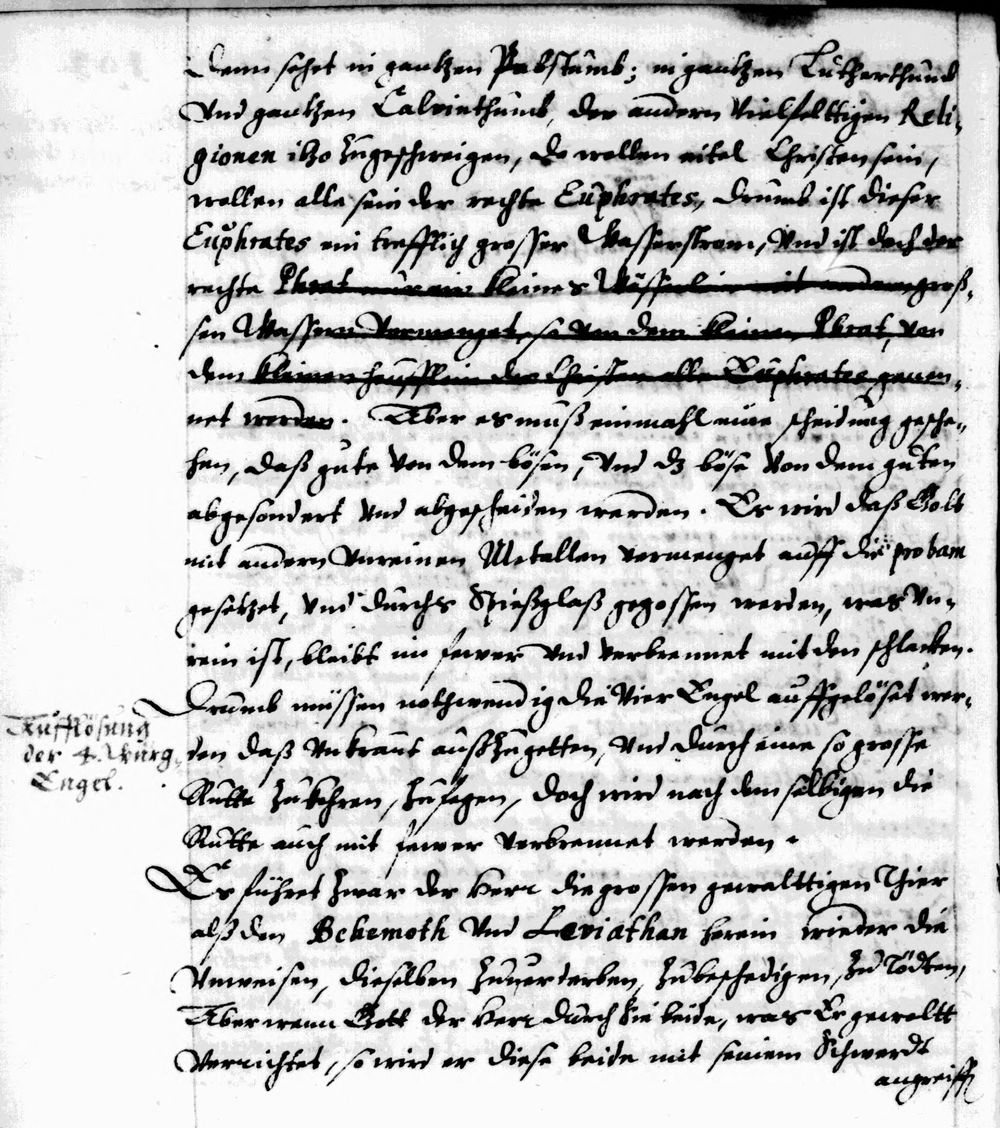 Denn sehet in gantzen Pabstumb; in gantzen Lutherthumb
Vnd gantzen Calvinthumb, der andern Vielfelttigen Reli-
gionen itzo zugeschweigen, Da wollen eitel Christen sein,
wollen alle sein der rechte Euphrates, Drumb ist dieser
Euphrates ein trefflich grosser Wasserstrom, Vnd ist doch der
rechte Phrat nur ein kleines Wässerlein mit andern groß-
sen Wassern Vermenget, so von dem kleinen Phrat, von
dem kleinen heufflein der Christen alle Euphrates genen-
net werden. Aber es muß einmahl eine scheidung gesche-
hen, daß gute von dem bösen, Vnd dz böse Von dem guten
abgesondert Vnd abgescheiden werden. Es wird daß Golt
mit andern Vnreinen Metallen vermenget auff die probam
gesetzet, Vnd durchs Spießglaß gegossen werden, was Vn-
rein ist, bleibt im fewer Vnd verbrennet mit den schlacken.
Drumb müssen nothwendig die Vier Engel auffgelöset wer-
Aufflösung
der 4. Würg
Engel.
den daß Vnkraut außzugetten, Vnd durch eine so grosse
Rutte zukehren, zufegen, doch wird nach dem selbigen die
Rutte auch mit fewer verbrennet werden.
Es führet zwar der Herr die grossen gewalttigen Thier
alß den Behemoth Vnd Leviathan herein wieder die
Vnweisen, dieselben zuuerterben, zubeschedigen, zu Tödten,
Aber wenn Gott der Herr durch sie beide, was Er gewoltt
Verrichtet, so wird er diese beide mit seinem Schwerdt
angreiffen